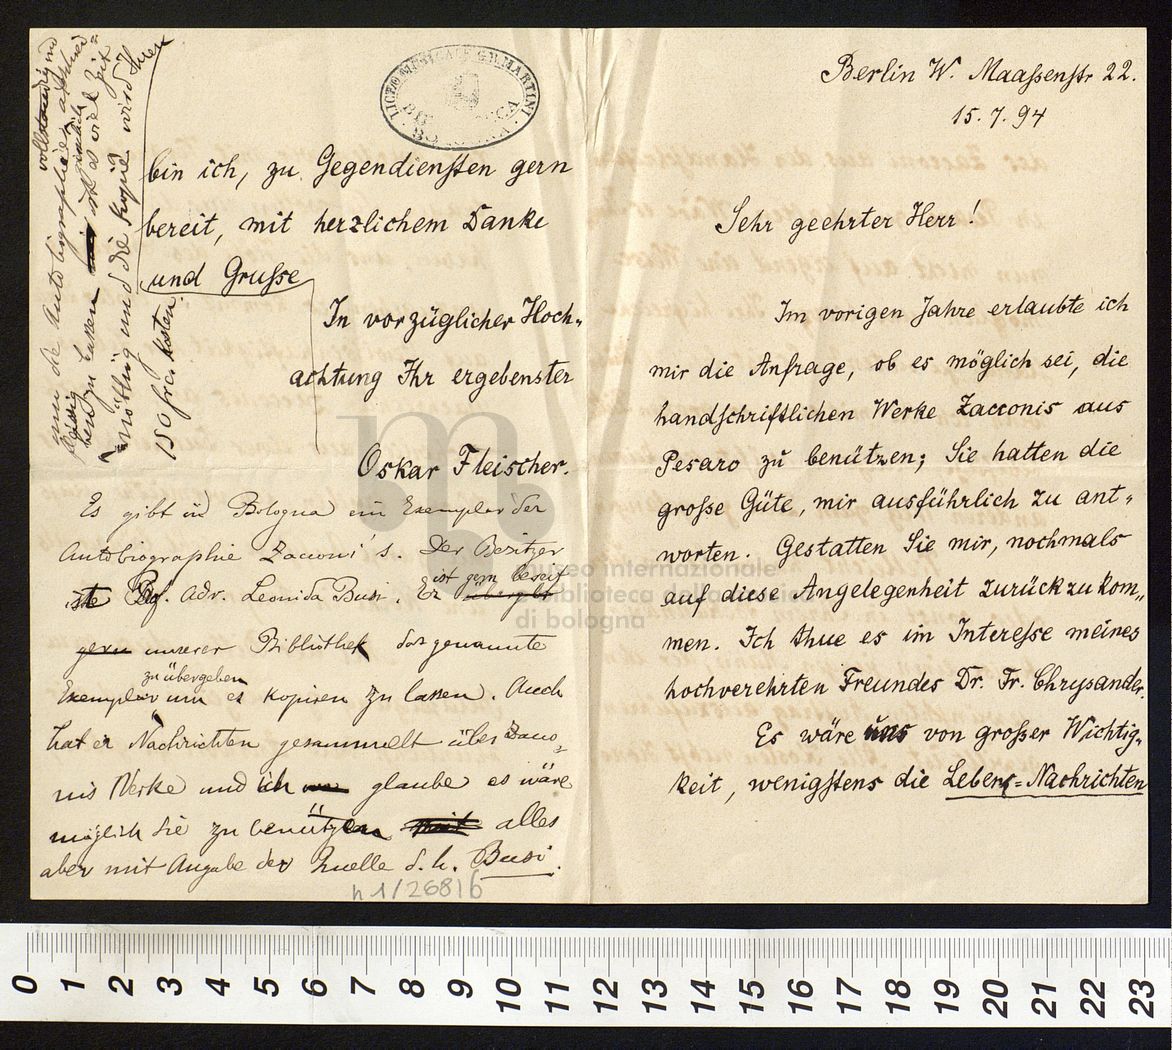 Berlin W. Maassenstr 22.
15. 7. 94
Sehr geehrter Herr!
Im vorigen Jahre erlaubte ich
mir die Anfrage, ob es möglich sei, die
handschriftlichen Werke Zacconis aus
Pesaro zu benützen; Sie hatten die
grosse Güte, mir ausführlich zu ant„
worten. Gestatten Sie mir, nochmals
auf diese Angelegenheit zurückzukom„
men. Ich thue es im Interesse meines
hochverehrten Freundes Dr. Fr. Chrysander.
Es wäre uns von grosser Wichtig„
keit, wenigstens die Lebens=Nachrichten
bin ich, zu Gegendiensten gern
bereit, mit herzlichem Danke
und Grusse
In vorzüglicher Hoch„
achtung Ihr ergebenster
Oskar Fleischer.
Es gibt in Bologna ein Exemplar der
Autobiographie Zacconi's. Der Besitzer
ist gern bereit
iste Adv. Leonida Busi. Er übergibt
gern unserer Bibliothek das genannte
zu übergeben
Exemplar um es kopiren zu lassen. Auch
hat er Nachrichten gesammelt über Zacco„
nis Werke und ich glaube es wäre
möglich Sie zu benützen alles
aber mit Angabe der Quelle d. h. Busi.
vollstaendig und
um die Autobiographie
zu lassen ist es viel Zeit
nöthig und die Kopie wird Ihnen
150 frei kosten.
LICEO MUSICALE G.B. MARTINI
BOLOGNA
museo internazionale
e biblioteca della musica
di bologna
h 1/26816
0 1 2 3 4 5 6 7 8 9 10 11 12 13 14 15 16 17 18 19 20 21 22 23